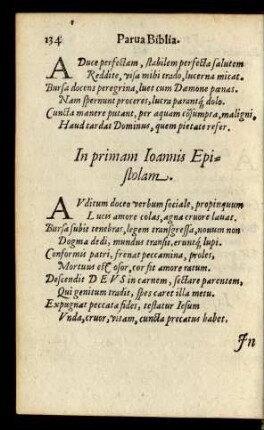 134 Parua Biblia.
ADuce perfectam, stabilem perfecta salutem
Reddite, visa mihi trado, lucerna micat.
Bursa docens peregrina, lues cum Damone pœnas.
Nam spernunt proceres, lucra parantq́ dolo.
Cuncta manere putant, per aquam cõsumpta, maligni.
Haud tardas Dominus, quem pietate refer.
In primam Ioannis Epi-
stolam.
AVditum doceo verbum sociale, propinquum
Lucis amore colas, agna cruore lauat.
Bursa subit tenebras, legem transgressa, nouum non
Dogma dedi, mundus transit, eruntq́ lupi.
Conformis patri, frenat peccamina, proles,
Mortuus osor, cor sit amore ratum.
Descendit DEVS in carnem, sectare parentem,
Qui genitum tradit, spes caret illa metu.
Expugnat peccata fides, testatur Iesum
Vnda, cruor, vitam, cuncta precatus habet.
In